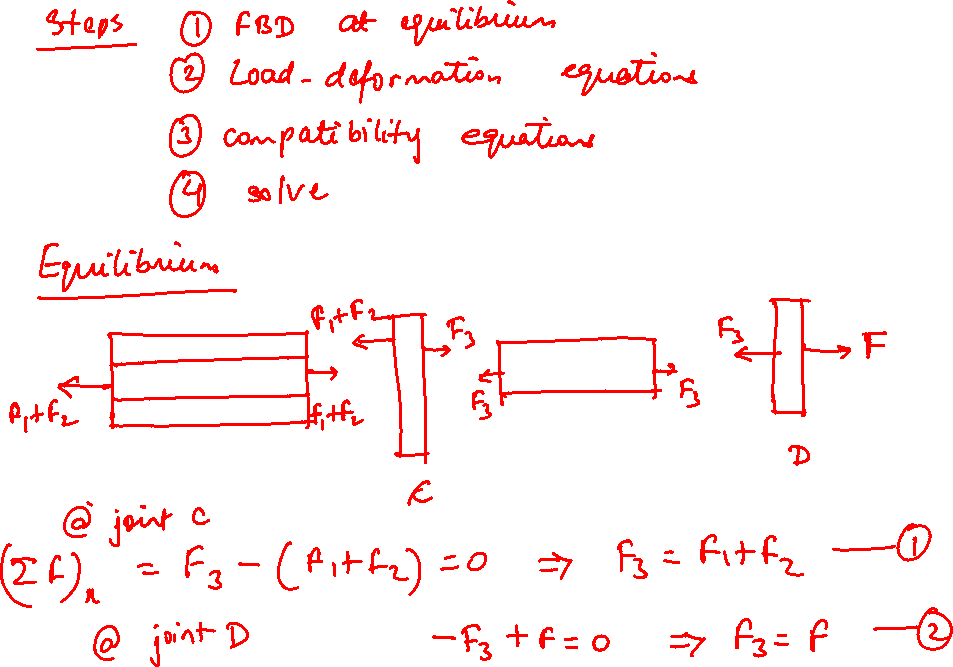 Steps ① FBD at equilibrium
② Load-deformation equations
③ compatibility equations
④ solve
Equilibrium
F₁+F₂ F₁+F₂ F₁+F₂ F₃ F₃ F₃ F₃ F
C D
@ joint C
(ΣF)ₓ = F₃ - (F₁+F₂) = 0 ⇒ F₃ = F₁+F₂ —①
@ joint D -F₃ + F = 0 ⇒ F₃ = F —②